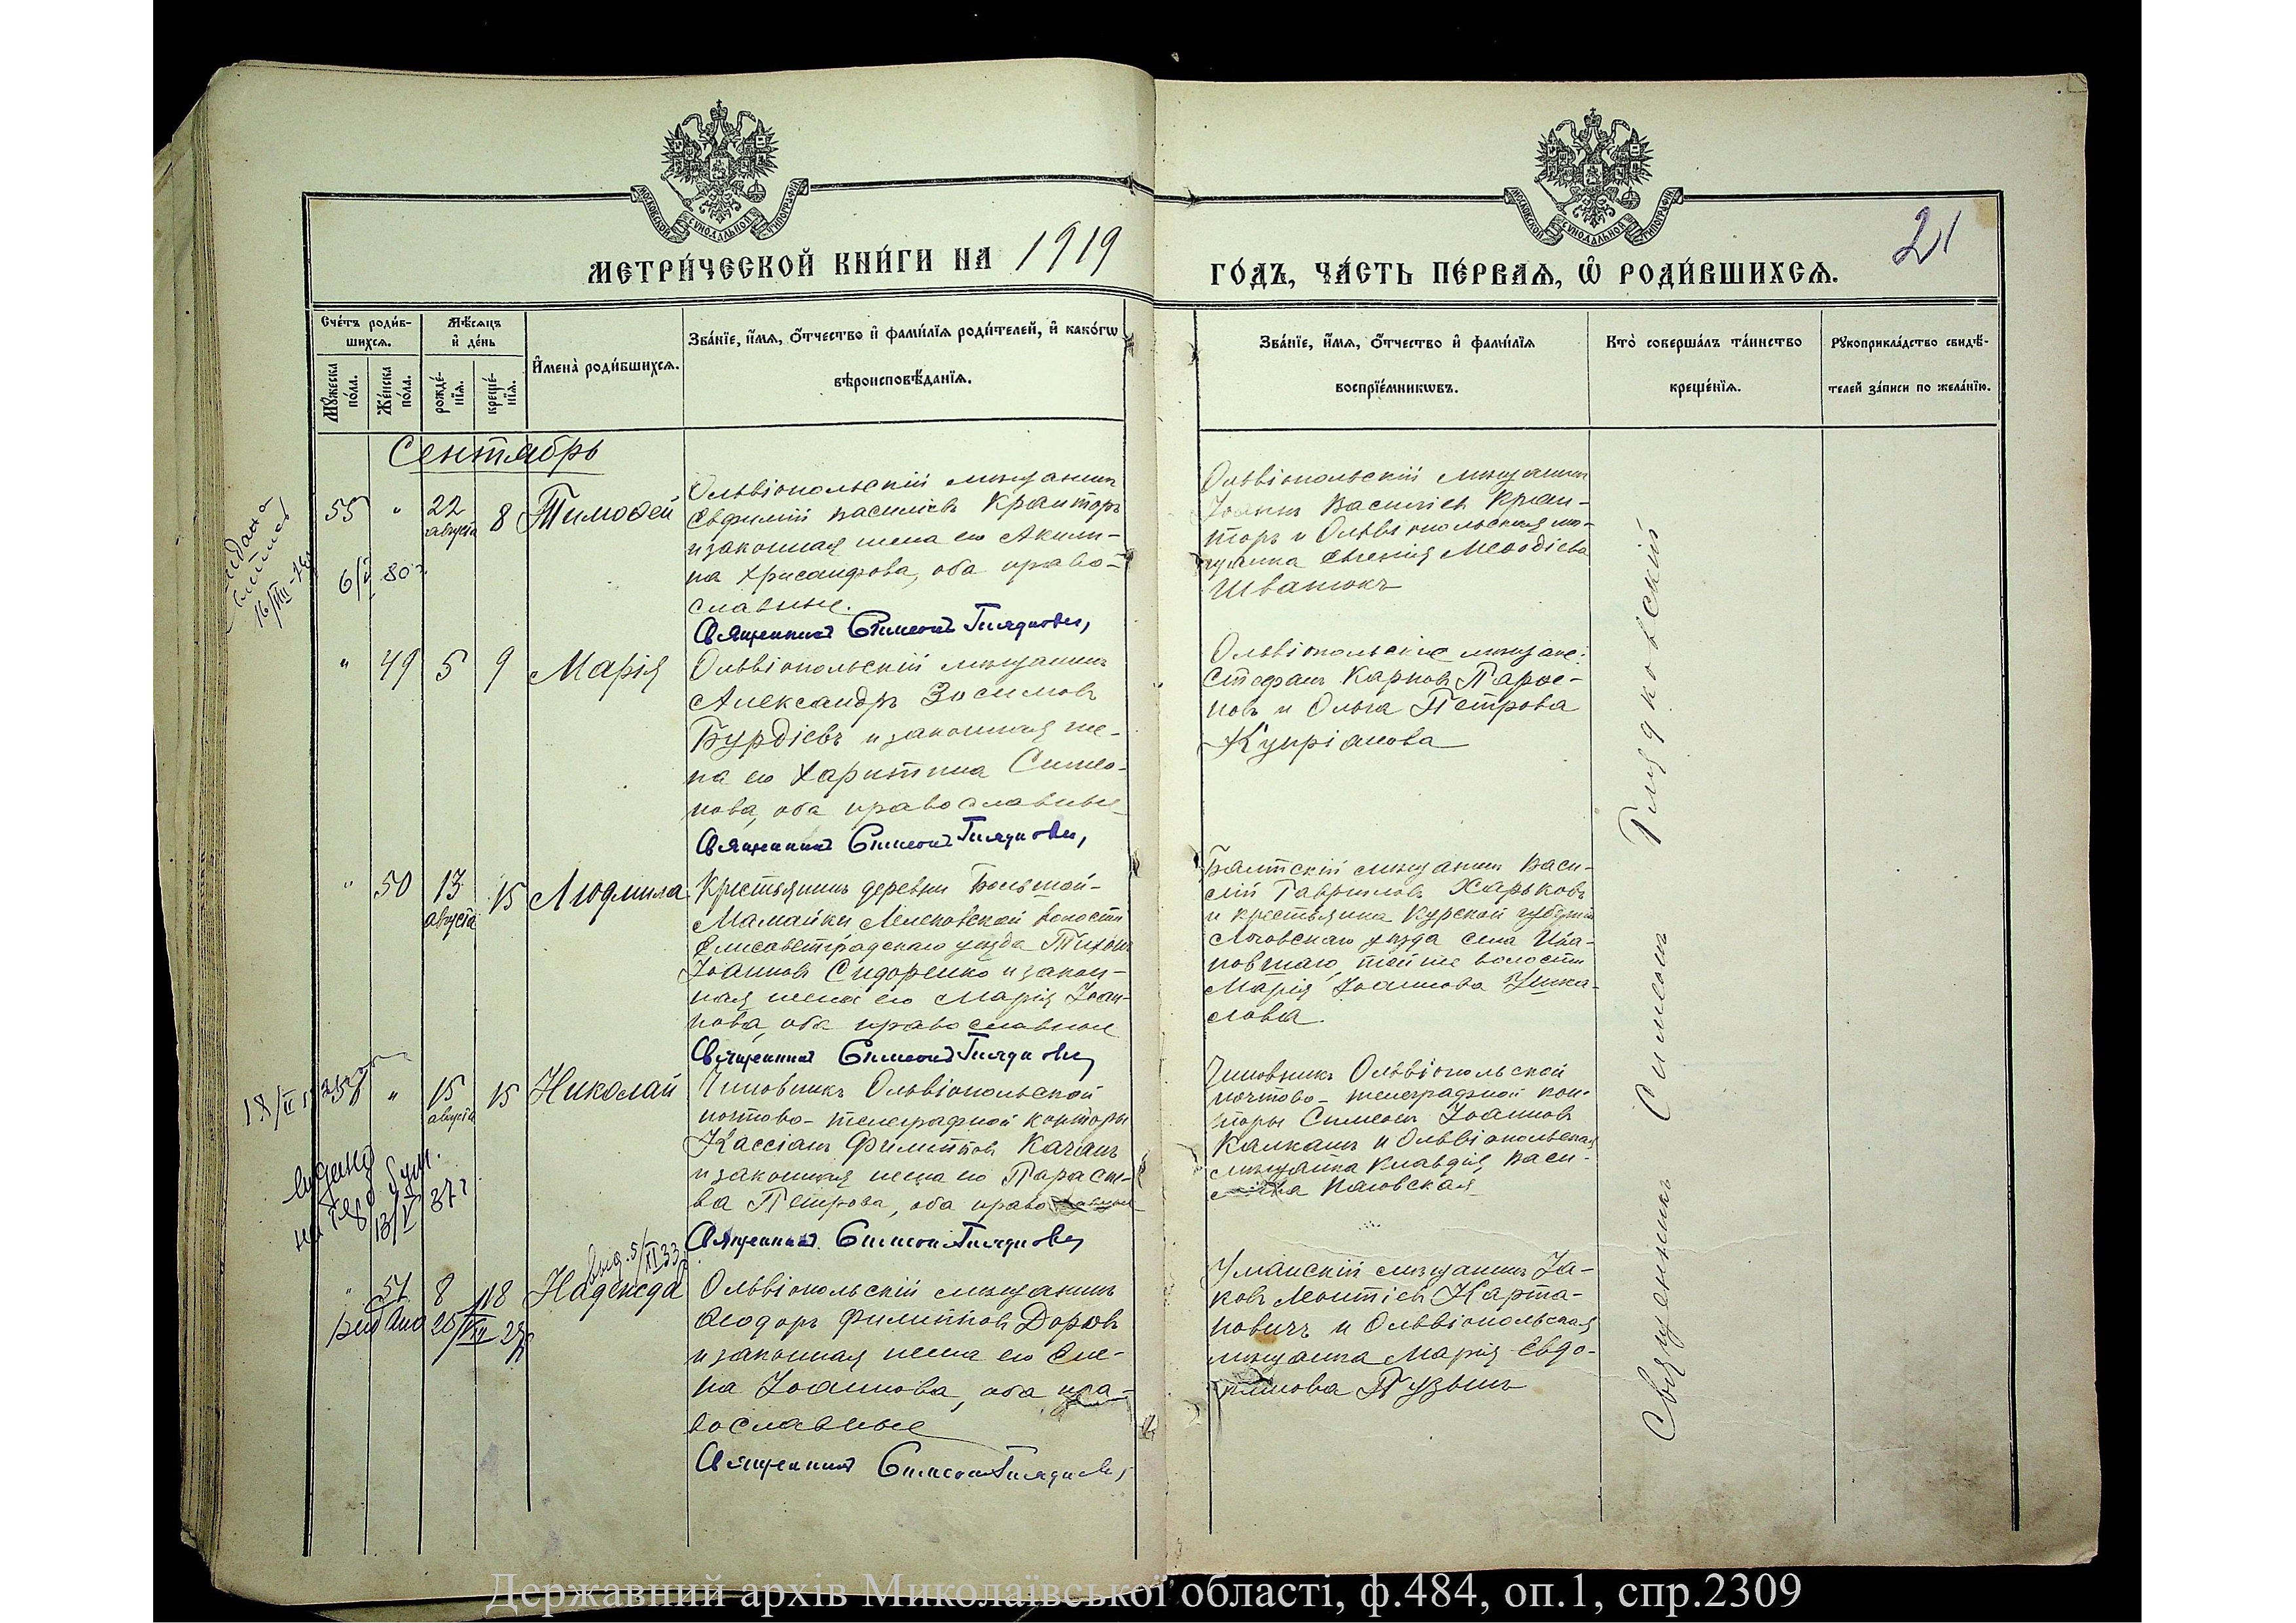 МЕТРИ́ЧЕСКОЙ КНИ́ГИ НА 1919
ГО́ДЪ, ЧА́СТЬ ПЕ́РВАѦ, Ѡ҆ РОДИ́ВШИХСѦ.
21
Сче́тъ роди́в-
шихсѧ.
Мꙋ́жеска по́ла.
Же́нска по́ла.
Мѣ́сѧцъ
и҆ де́нь
рожде́-
нїѧ.
креще́-
нїѧ.
И҆мена̀ роди́вшихсѧ.
Зва́нїе, и҆́мѧ, ѻ҆́тчество и҆ фами́лїѧ роди́телей, и҆ како́гѡ
вѣроисповѣ́данїѧ.
Зва́нїе, и҆́мѧ, ѻ҆́тчество и҆ фами́лїѧ
воспрїе́мникѡвъ.
Кто̀ соверша́лъ та́инство
креще́нїѧ.
Рꙋкоприкла́дство свидѣ́-
телей за́писи по жела́нїю.
Сентябрь
55 " 22 августа 8 Тимоѳей
Ольвіопольскій мѣщанинъ
Евфимій Василіевъ Кранторъ
и законная жена его Акили-
на Хрисанфова, оба право-
славные.
Священникъ Симеонъ Гляд
Ольвіопольскій мѣщанинъ
Іоаннъ Василіевъ Кран-
торъ и Ольвіопольская мѣ-
щанка Евгенія Меѳодіева
Шванюкъ
" 49 5 9 Марія
Ольвіопольскій мѣщанинъ
Александръ Зосимовъ
Бурдіевъ и законная же-
на его Харитина Симео-
нова, оба православные
Священникъ Симеонъ
Ольвіопольскіе мѣщане:
Стефанъ Карповъ
и Ольга Петрова
Купріанова
" 50 13 августа 15 Людмила
Крестьянинъ деревни Большой-
Мамайки волости
Елисаветградскаго уѣзда Тихонъ
Іоанновъ Сидоренко и закон-
ная жена его Марія Іоан-
нова, оба православные
Священникъ Симеонъ
Балтскій мѣщанинъ Васи-
лій Гавриловъ Харьковъ
и крестьянка Курской губерніи
уѣзда села Ива-
той же волости
Марія Іоаннова
" 15 августа 15 Николай
Чиновникъ Ольвіопольской
почтово-телеграфной конторы
Кассіанъ Филипповъ Качанъ
и законная жена его Параске-
ва Петрова, оба православные
Священникъ Симеонъ
Чиновникъ Ольвіопольской
почтово-телеграфной кон-
торы Симеонъ Іоанновъ
Калканъ и Ольвіопольская
мѣщанка Клавдія Васи-
" 51 8 18 Надежда
Ольвіопольскій мѣщанинъ
Ѳеодоръ Филипповъ
и законная жена его Еле-
на Іоаннова, оба пра-
вославные
Священникъ Симеонъ
Уманскій мѣщанинъ Іа-
ковъ Карпа-
новичъ и Ольвіопольская
мѣщанка Марія Евдо-
кимова Пузынъ
Священникъ Симеонъ
Державний архів Миколаївської області, ф.484, оп.1, спр.2309